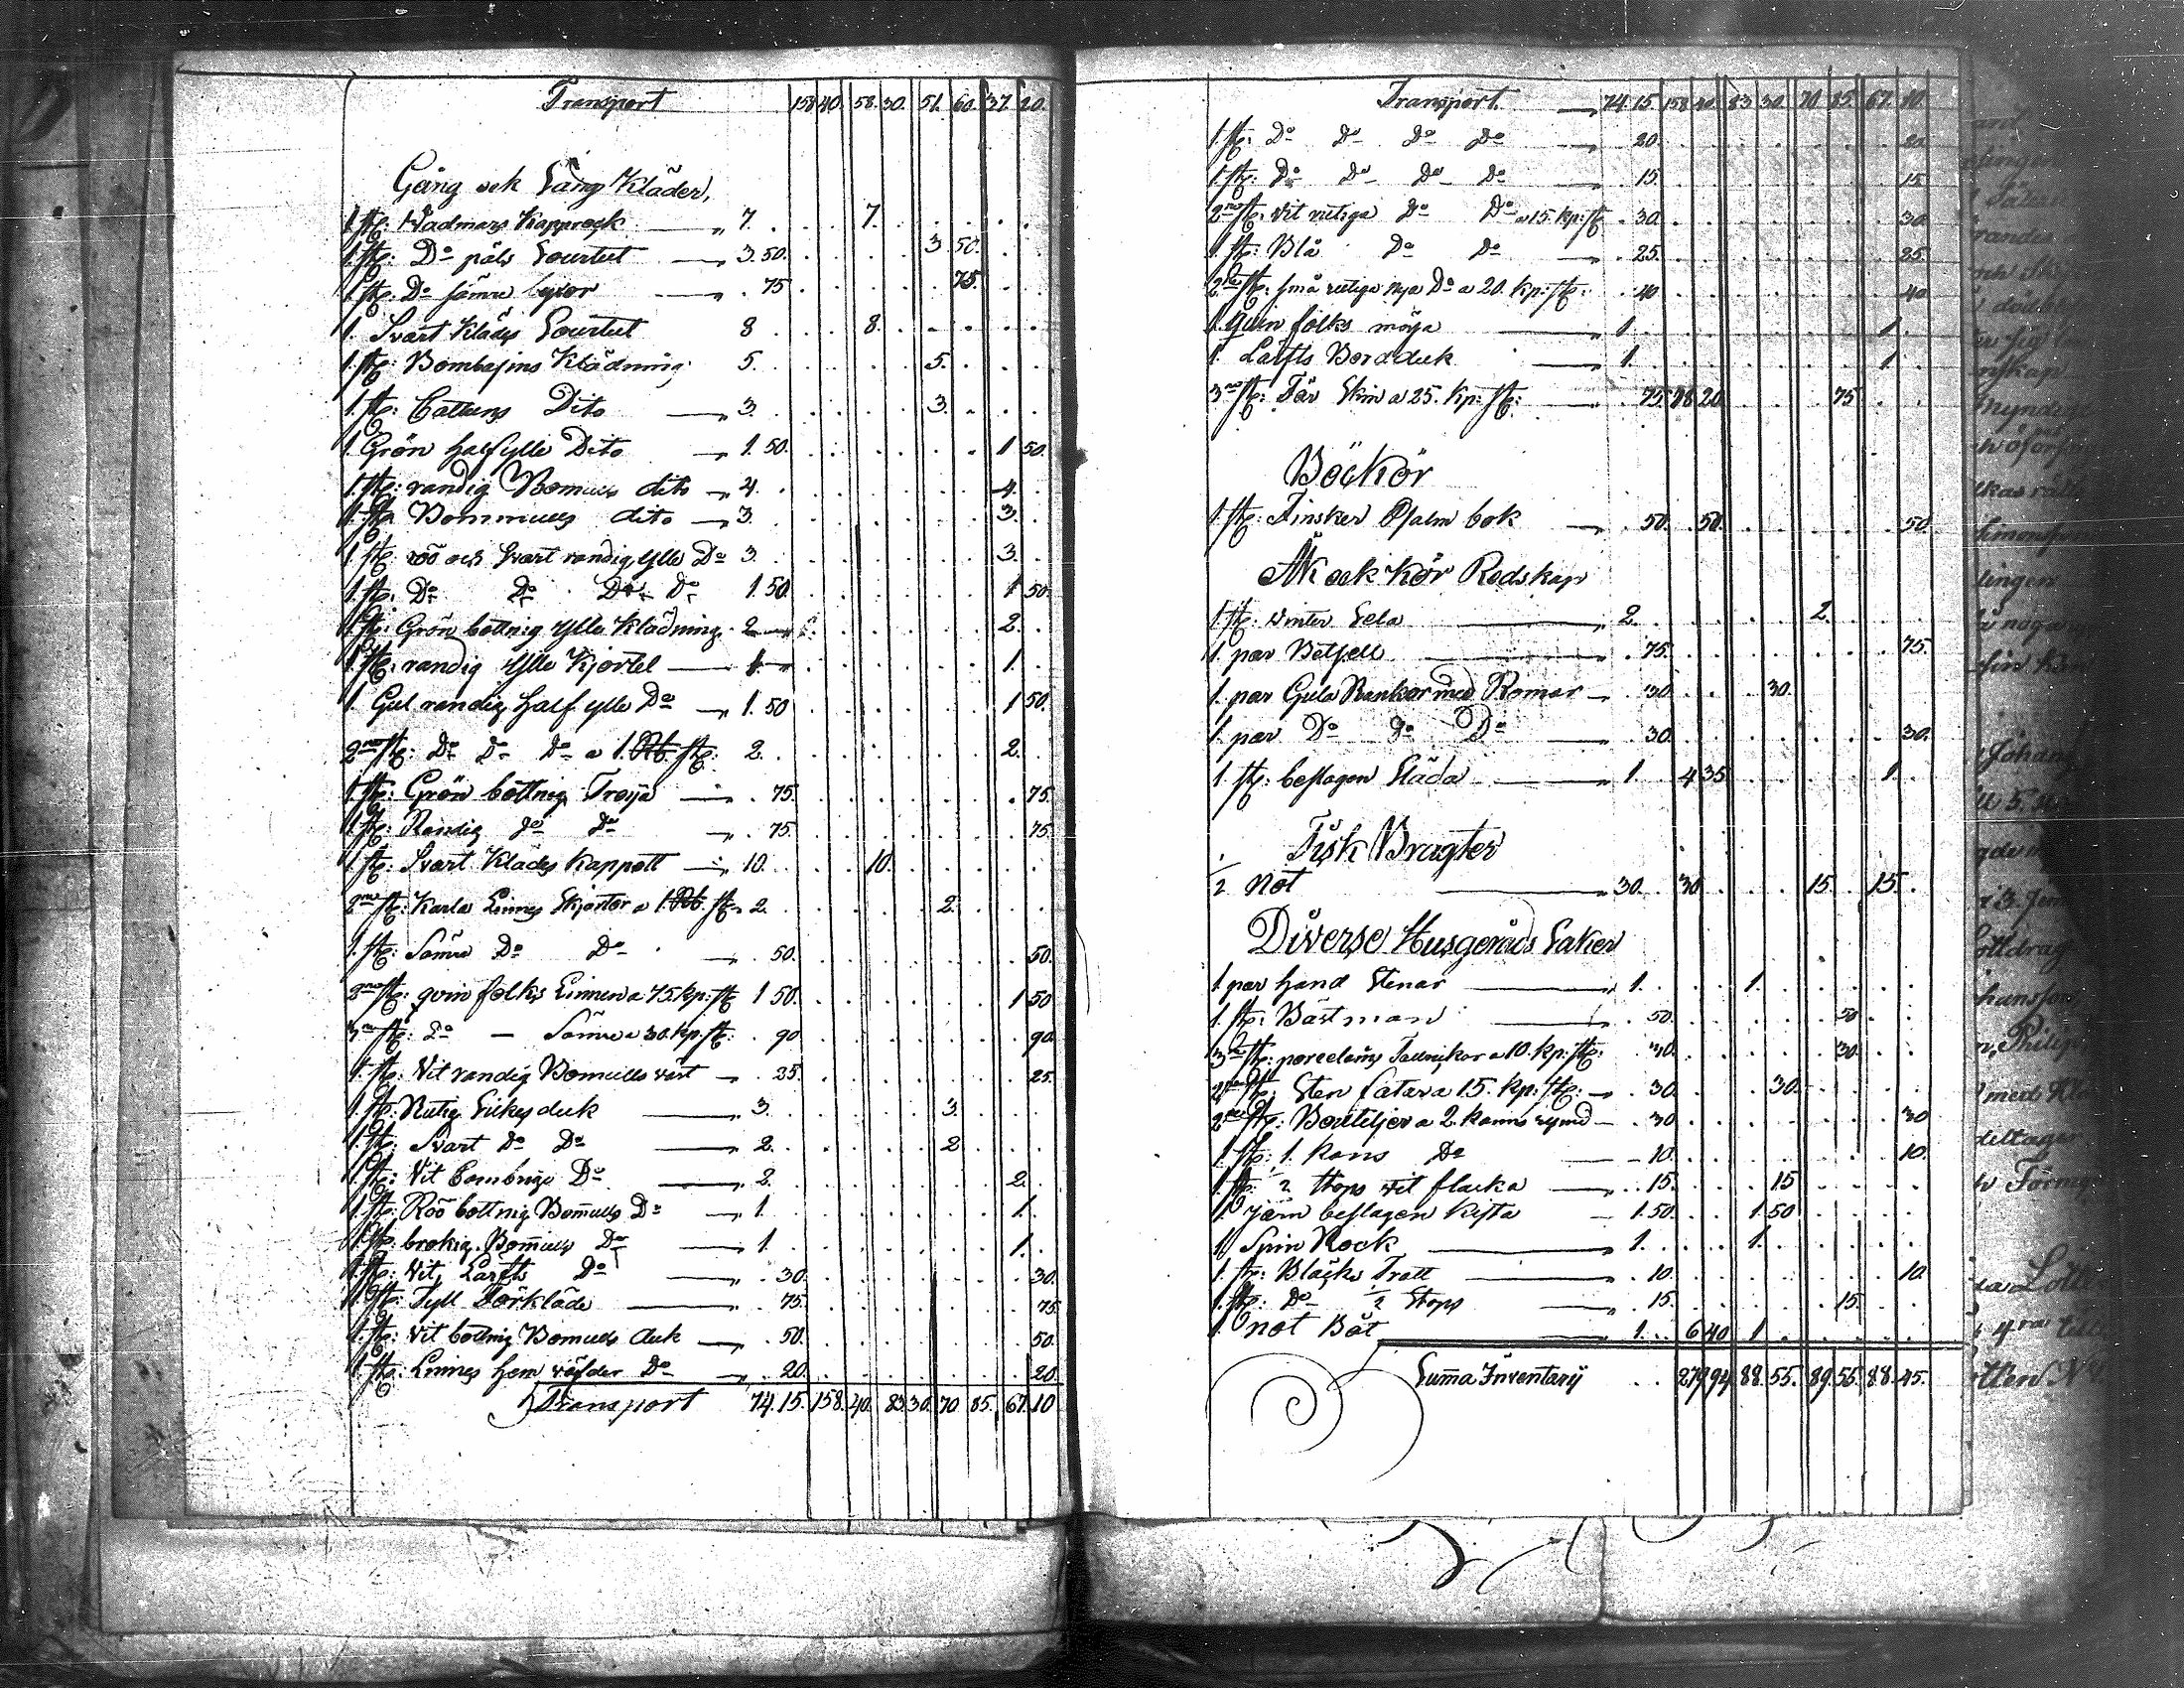 Transport 158 40. 58. 30. 51. 60. 37. 20.
Gång ock Säng Kläder,
1. st: Wadmars Kapprock 7. 7.
1. st: Do päls Sourtut 3.50. 3 50.
1 st: Do sämre byxor 75 75.
1. Svart Klädes Sourtut 8 8.
1. st: Bombasins Klädning 5. 5.
1. st: Cattuns Dito 3. 3.
1. Grön half ylle Dito 1. 50. 1 50.
1. st: randig Bomuls dito 4. 4.
1. st: Bommuls dito 3. 3.
1 st: röö och Svart randig ylle Do 3. 3.
1. st. Do Do Do Do 1. 50. 1 50.
1 st: Grön bottnig ylle Klädning 2 2.
1. st: randig ylle Kjortel 1 1.
1. Gul randig half ylle Do 1. 50 1 50.
2ne st: Do Do Do a 1. Rb. st: 2. 2.
1 st: Grön bottnig Tröija 75. 75.
1. st: Randig do do 75. 75.
1 st: Svart Klädes Kappott 10. 10.
2ne st: Karla Linnes Skjortor a 1. Rb. st 2. 2.
1. st: Sämre Do Do 50. 50.
2ne st: qvin folks Linnen a 75. kp: st 1 50. 1 50
3ne st: Do — Sämre a 30. kp. st: 90 90.
1. st: Vit randig Bomulls väst 25. 25.
1 st: Rutig Silkes duk 3. 3.
1 st: Svart Do Do 2. 2
1. st: Vit Cambrige Do 2. 2.
1 st: Röö bottnig Bomuls Do 1. 1.
1 st: brokig Bomuls Do 1. 1.
1 st: Vit, Larfts Do 30. 30.
1. st: Tyll Förkläde 75. 75
1. st: Vit bottnig Bomuls duk 50. 50.
1. st: Linnes hem väfder Do 20. 20.
Transport 74.15. 158. 40. 83 30. 70 85. 67. 10
Transport. 74. 15. 158 40. 83. 30. 70 85. 67. 10.
1 st: Do Do Do Do 20. 20.
1. st: Do Do Do Do 15. 15
2ne st. Vit rutiga Do Do a 15. kp: st 30. 30.
1. st: Blå Do Do 25. 25.
2ne st: små rutiga nya Do a 20. kp: st: 40 40
1. qvin folks möja 1. 1.
1. Larfts Bordduk 1. 1
3ne st: Får Skin a 25. kp: st: 75. 78 20. 75
Böckör
1. st: Finsker Psalm bok 50. 50. 50.
Åk ock Kör Redskap
1. st: winter Sela 2. 2.
1. par Betsell 75. 75.
1. par Gula Rankor med Römar 30. 30.
1. par Do do Do 30. 30.
1. st: beslagen Släda 1. 4 35. 1.
Fisk Bragter
1/2 Not 30. 30 15. 15.
Diverse Husgeråds Saker
1 par hand Stenar 1. 1.
1. st: Bästman 50. 50.
3ne st: porcelains Tallrikor a 10. kp: st: 30. 30.
2ne st: Sten fatar a 15. kp: st: 30. 30.
2ne st: Bouteljer a 2. kanns rymd 30 30
1 st: 1. kans Do 10. 10.
1. st: 1/2 Stops vit flaska 15. 15
1. järn beslagen kista 1.50. 1 50
1. Spin Rock 1. 1.
1. st: Bläcks Tratt 10. 10.
1. st: Do 1/2 Stops 15. 15.
1. not Båt 1. 6 40 1
Suma Inventarij 279 94 88. 55. 89. 55. 88. 45.